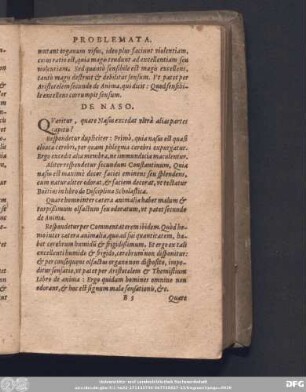 PROBLEMATA.
mutant organum visus, ideo plus faciunt violentiam,
cuius ratio est, quia magis tendunt ad excellentiam seu
violentiam. Sed quanto sensibile est magis excellens,
tanto magis destruit & debilitat sensum. Vt patet per
Aristotelem secundo de Anima, qui dicit: Quod sensibile
excellens corrumpit sensum.
DE NASO.
QVæritur, quare Nasus excedat vltrà alias partes
capitis?
Respondetur dupliciter: Primò, quia nasus est quasi
cloaca cerebri, per quam phlegma cerebri expurgatur.
Ergo excedit alia membra, ne immunditia maculentur.
Aliter respondetur secundum Constantinum, Quia
nasus est maximi decor faciei eminens seu splendens,
eam naturaliter adornat, & faciem decorat, vt testatur
Boëtius in libro de Disciplina Scholastica.
Quare homo inter cætera animalia habet malum &
turpissimum olfactum seu odoratum, vt patet secundo
de Anima.
Respondetur per Commentatorem ibidem. Quòd homo
inter cætera animalia, quo ad sui quantitatem, habet
cerebrum humidū & frigidissimum. Et ergo ex tali
excellenti humido & frigido, cerebrum non disponitur:
& per consequens olfactus organo non disposito, impeditur
sensatio, vt patet per Aristotelem & Themistium
Libro de anima: Ergo quidam homines omnino non
odorant, & hoc est signum malæ sensationis, &c.
B 5 Quare